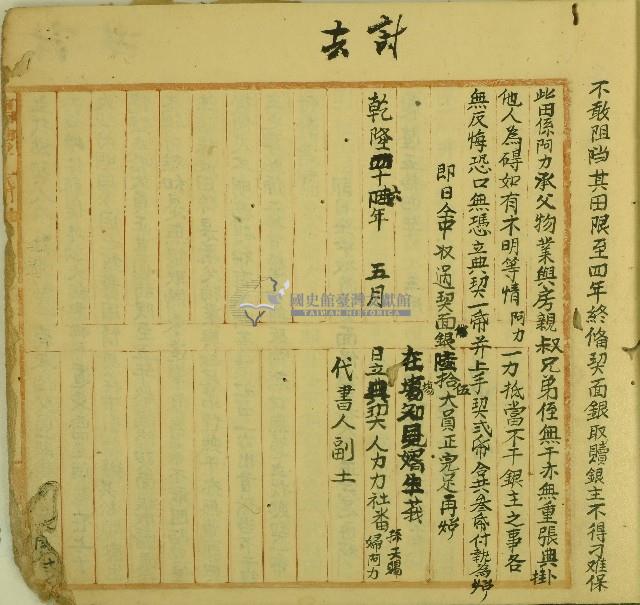 計去
不敢阻挡其田限至四年終俻契面銀取贖銀主不得刁难保
此田係阿力承父物業與房親叔兄弟侄無干亦無重張典掛
他人為碍如有不明等情阿力一力抵當不干銀主之事各
無反悔恐口無憑立典契一帋并上手契弍帋合共叁帋付執為炤
即日仝中收過契面銀陸拾伍大員正完足再炤
乾隆四十六年 五月 日立典契人力力社番婦阿力
在塲知見
孫天賜
代書人副土
國史館臺灣文獻館
TAIWAN HISTORICA